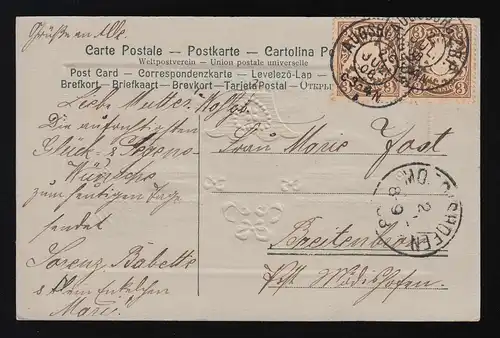 Grüße an Alle.
Carte Postale – Postkarte – Cartolina
Weltpostverein – Union postale universelle
Post Card – Correspondenzkarte – Levelező-Lap
Brefkort – Briefkaart – Brevkort – Tarjeta Postal –
Liebe Mutter
Die aufrichtigsten
Glück- & Segens-
Wünsche
zum heutigen Tage
sendet
Lorenz, Babette
& klein Enkelchen
Marie.
AUGSBURG
3 3
3
Frau Marie Jost
Breitenbronn
Post Dödishofen